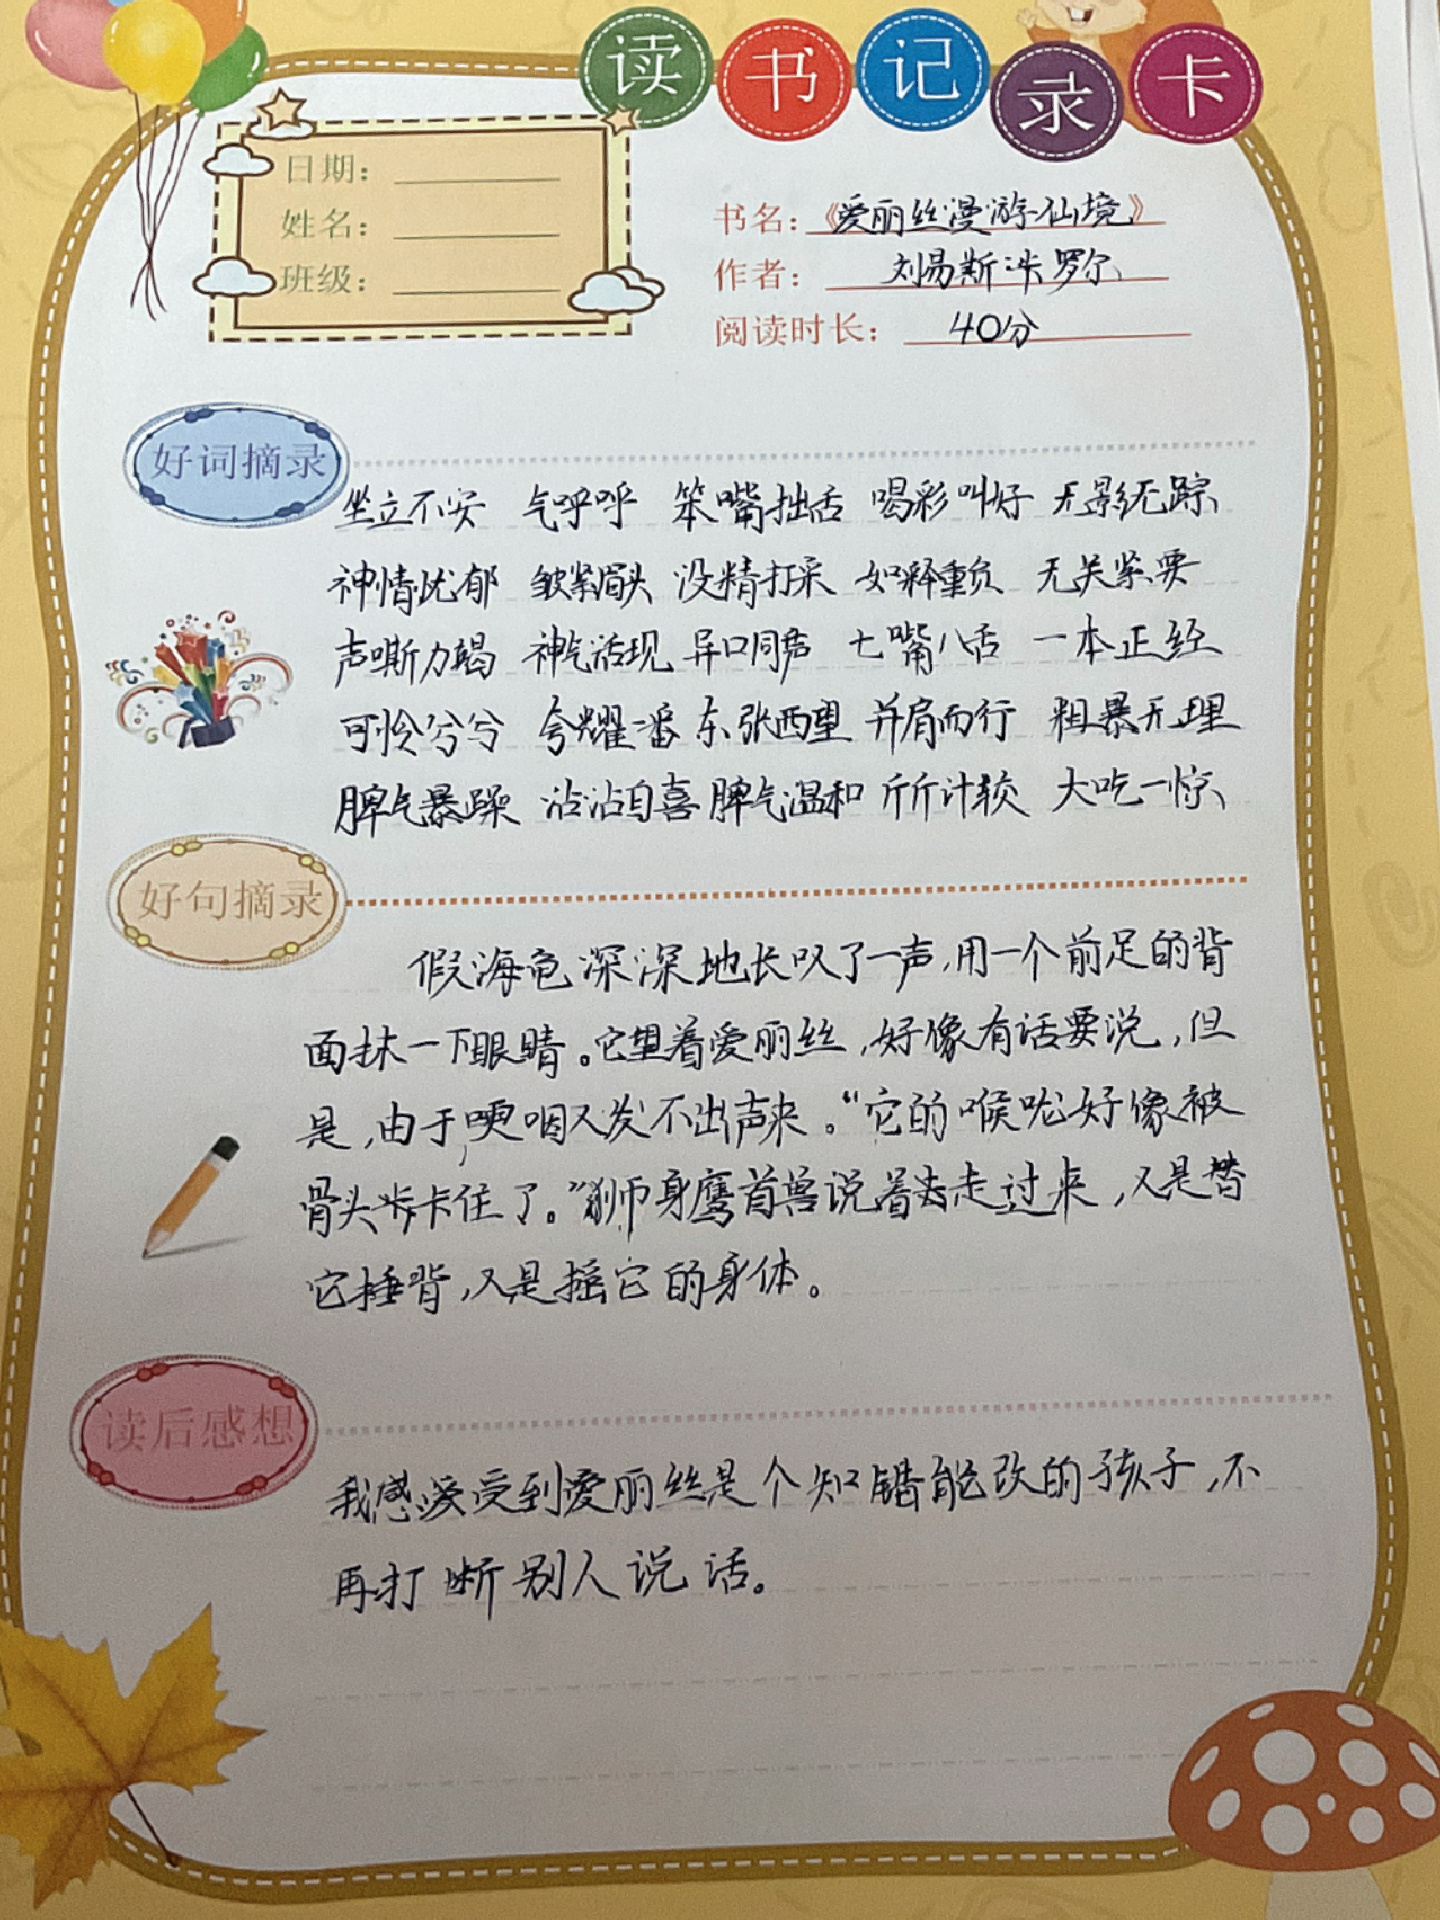 读书记录卡
日期：
姓名：
班级：
书名：《爱丽丝漫游仙境》
作者：刘易斯·卡罗尔
阅读时长：40分
好词摘录
坐立不安 气呼呼 笨嘴拙舌 喝彩叫好 无影无踪
神情忧郁 皱紧眉头 没精打采 如释重负 无关紧要
声嘶力竭 神气活现 异口同声 七嘴八舌 一本正经
可怜兮兮 夸耀一番 东张西望 并肩而行 粗暴无理
脾气暴躁 沾沾自喜 脾气温和 斤斤计较 大吃一惊
好句摘录
假海龟深深地长叹了一声，用一个前足的背
面抹一下眼睛。它望着爱丽丝，好像有话要说，但
是，由于哽咽又发不出声来。“它的喉咙好像被
骨头卡住了。”狮身鹰首兽说着走过来，又是替
它捶背，又是摇它的身体。
读后感想
我感受到爱丽丝是个知错能改的孩子，不
再打断别人说话。